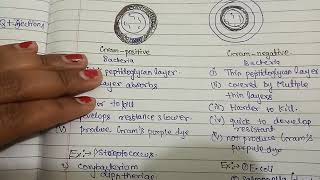 Q + injections
Gram-positive
Bacteria
Gram-negative
Bacteria
peptidoglycan layer
(i) Thin peptidoglycan layer
layer absorbs
(ii) covered by multiple
thin layers
to kill
(iii) Harder to kill.
develops resistance slower.
(iv) quick to develop
resistant
(v) produce Gram's purple dye
(v) not produce Gram's
purple dye
Ex:-
Streptococcus
corybacterium
diphtheriae
Ex:- E.coli